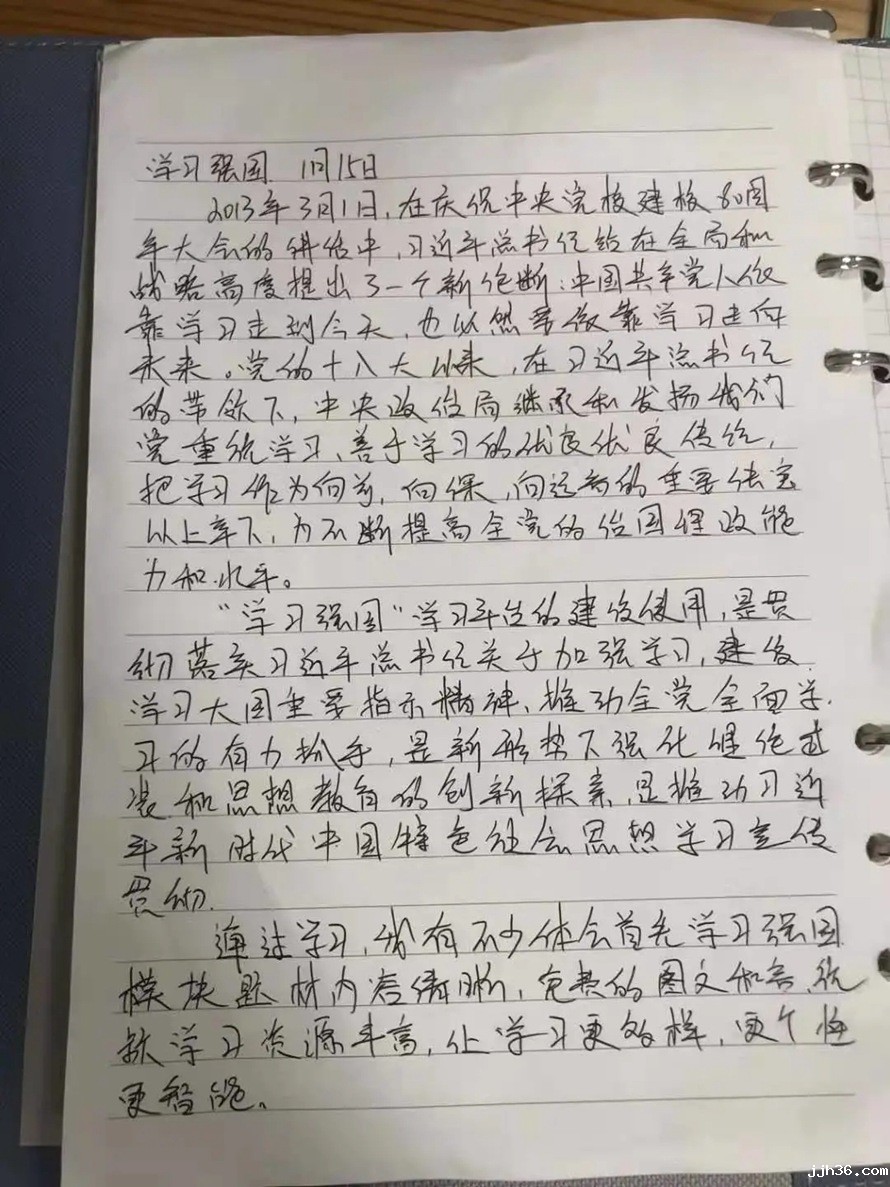 学习强国 1月15日
2013年3月1日，在庆祝中央党校建校80周
年大会的讲话中，习近平总书记站在全局和
战略高度提出了一个新论断：中国共产党人依
靠学习走到今天，也必然要依靠学习走向
未来。党的十八大以来，在习近平总书记
的带领下，中央政治局继承和发扬我们
党重视学习、善于学习的优良优良传统，
把学习作为向前，向深，向远的重要法宝
以上率下，为不断提高全党的治国理政能
力和水平。
“学习强国”学习平台的建设使用，是贯
彻落实习近平总书记关于加强学习，建设
学习大国重要指示精神、推动全党全面学
习的有力抓手，是新形势下强化理论武
装和思想教育的创新探索，是推动习近
平新时代中国特色社会思想学习宣传
贯彻.
通过学习，我有不少体会首先学习强国
模块题材内容清晰，免费的图文和音视
频学习资源丰富，让学习更多样，更个性
更智能。
jjh36.com